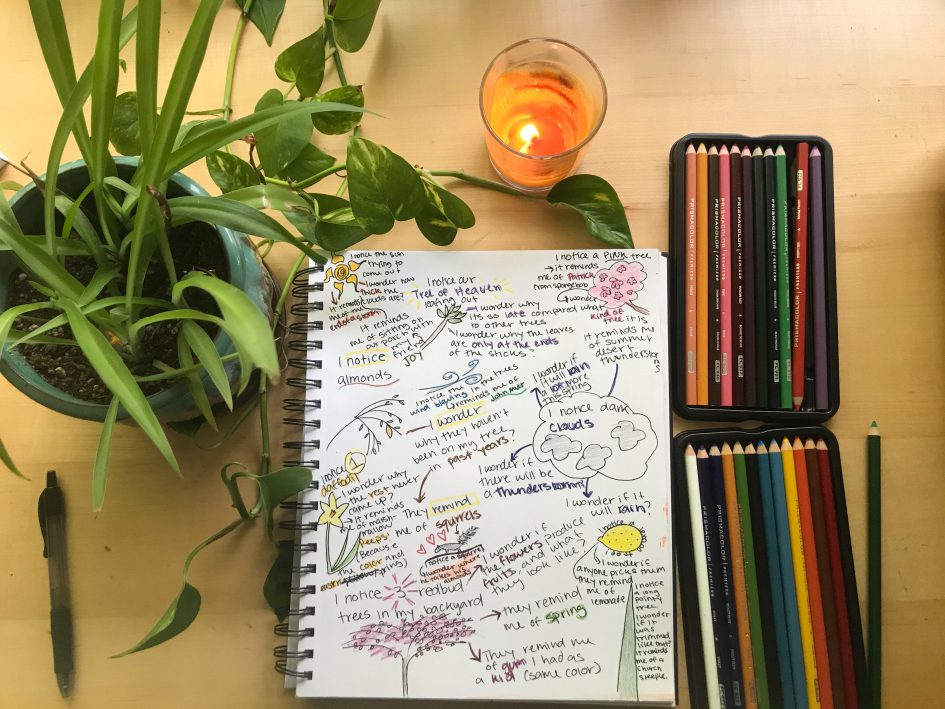 I notice the sun
trying to
come out
I wonder how
thick the
clouds are?
It reminds
me of the
end of a storm
I notice our
Tree of Heaven
leafing out
I wonder why
its so late compared
to other trees
I wonder why the leaves
are only at the ends
of the sticks?
It reminds
me of sitting on
our porch with
my
friend
JOJ
I notice a PINK tree
it reminds
me of Patrick
from spongebob
I wonder
what
kind of
tree it is
I notice
almonds
I notice the
wind blowing in the trees
reminds me of
John Muir
I wonder
why they haven't
been on my tree
in past years?
They remind
me of squirrels
I notice a squirrel
I wonder where
he takes his
almonds
I notice 1
daffodil
I wonder why
the rest never
came up?
It reminds
me of marsh-
mallow
peeps!
Because
the color and
spring)
I notice dark
clouds
I wonder if
it will rain
a lot more
this spring
It reminds me
of summer
desert
thunderstorms
I wonder if
there will be
a thunderstorm
I wonder if it
will rain?
I notice 3 redbud
trees in my backyard
I wonder if
the flowers produce
fruits and what
they look like?
they remind
me of spring
They remind me
of gum I had as
a kid (same color)
I notice a
I wonder if
anyone picks them
they remind
me of
lemonade
I notice
a long
pointy
tree.
I wonder
if it
was
trimmed
like that?
It reminds
me of a
church
steeple.
PRISMACOLOR PREMIER
PRISMACOLOR PREMIER
PRISMACOLOR PREMIER
PRISMACOLOR
PRISMACOLOR
PRISMACOLOR